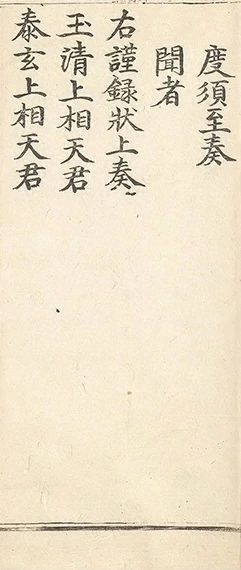 度須至奏
聞者
右謹録狀上奏
玉清上相天君
泰玄上相天君